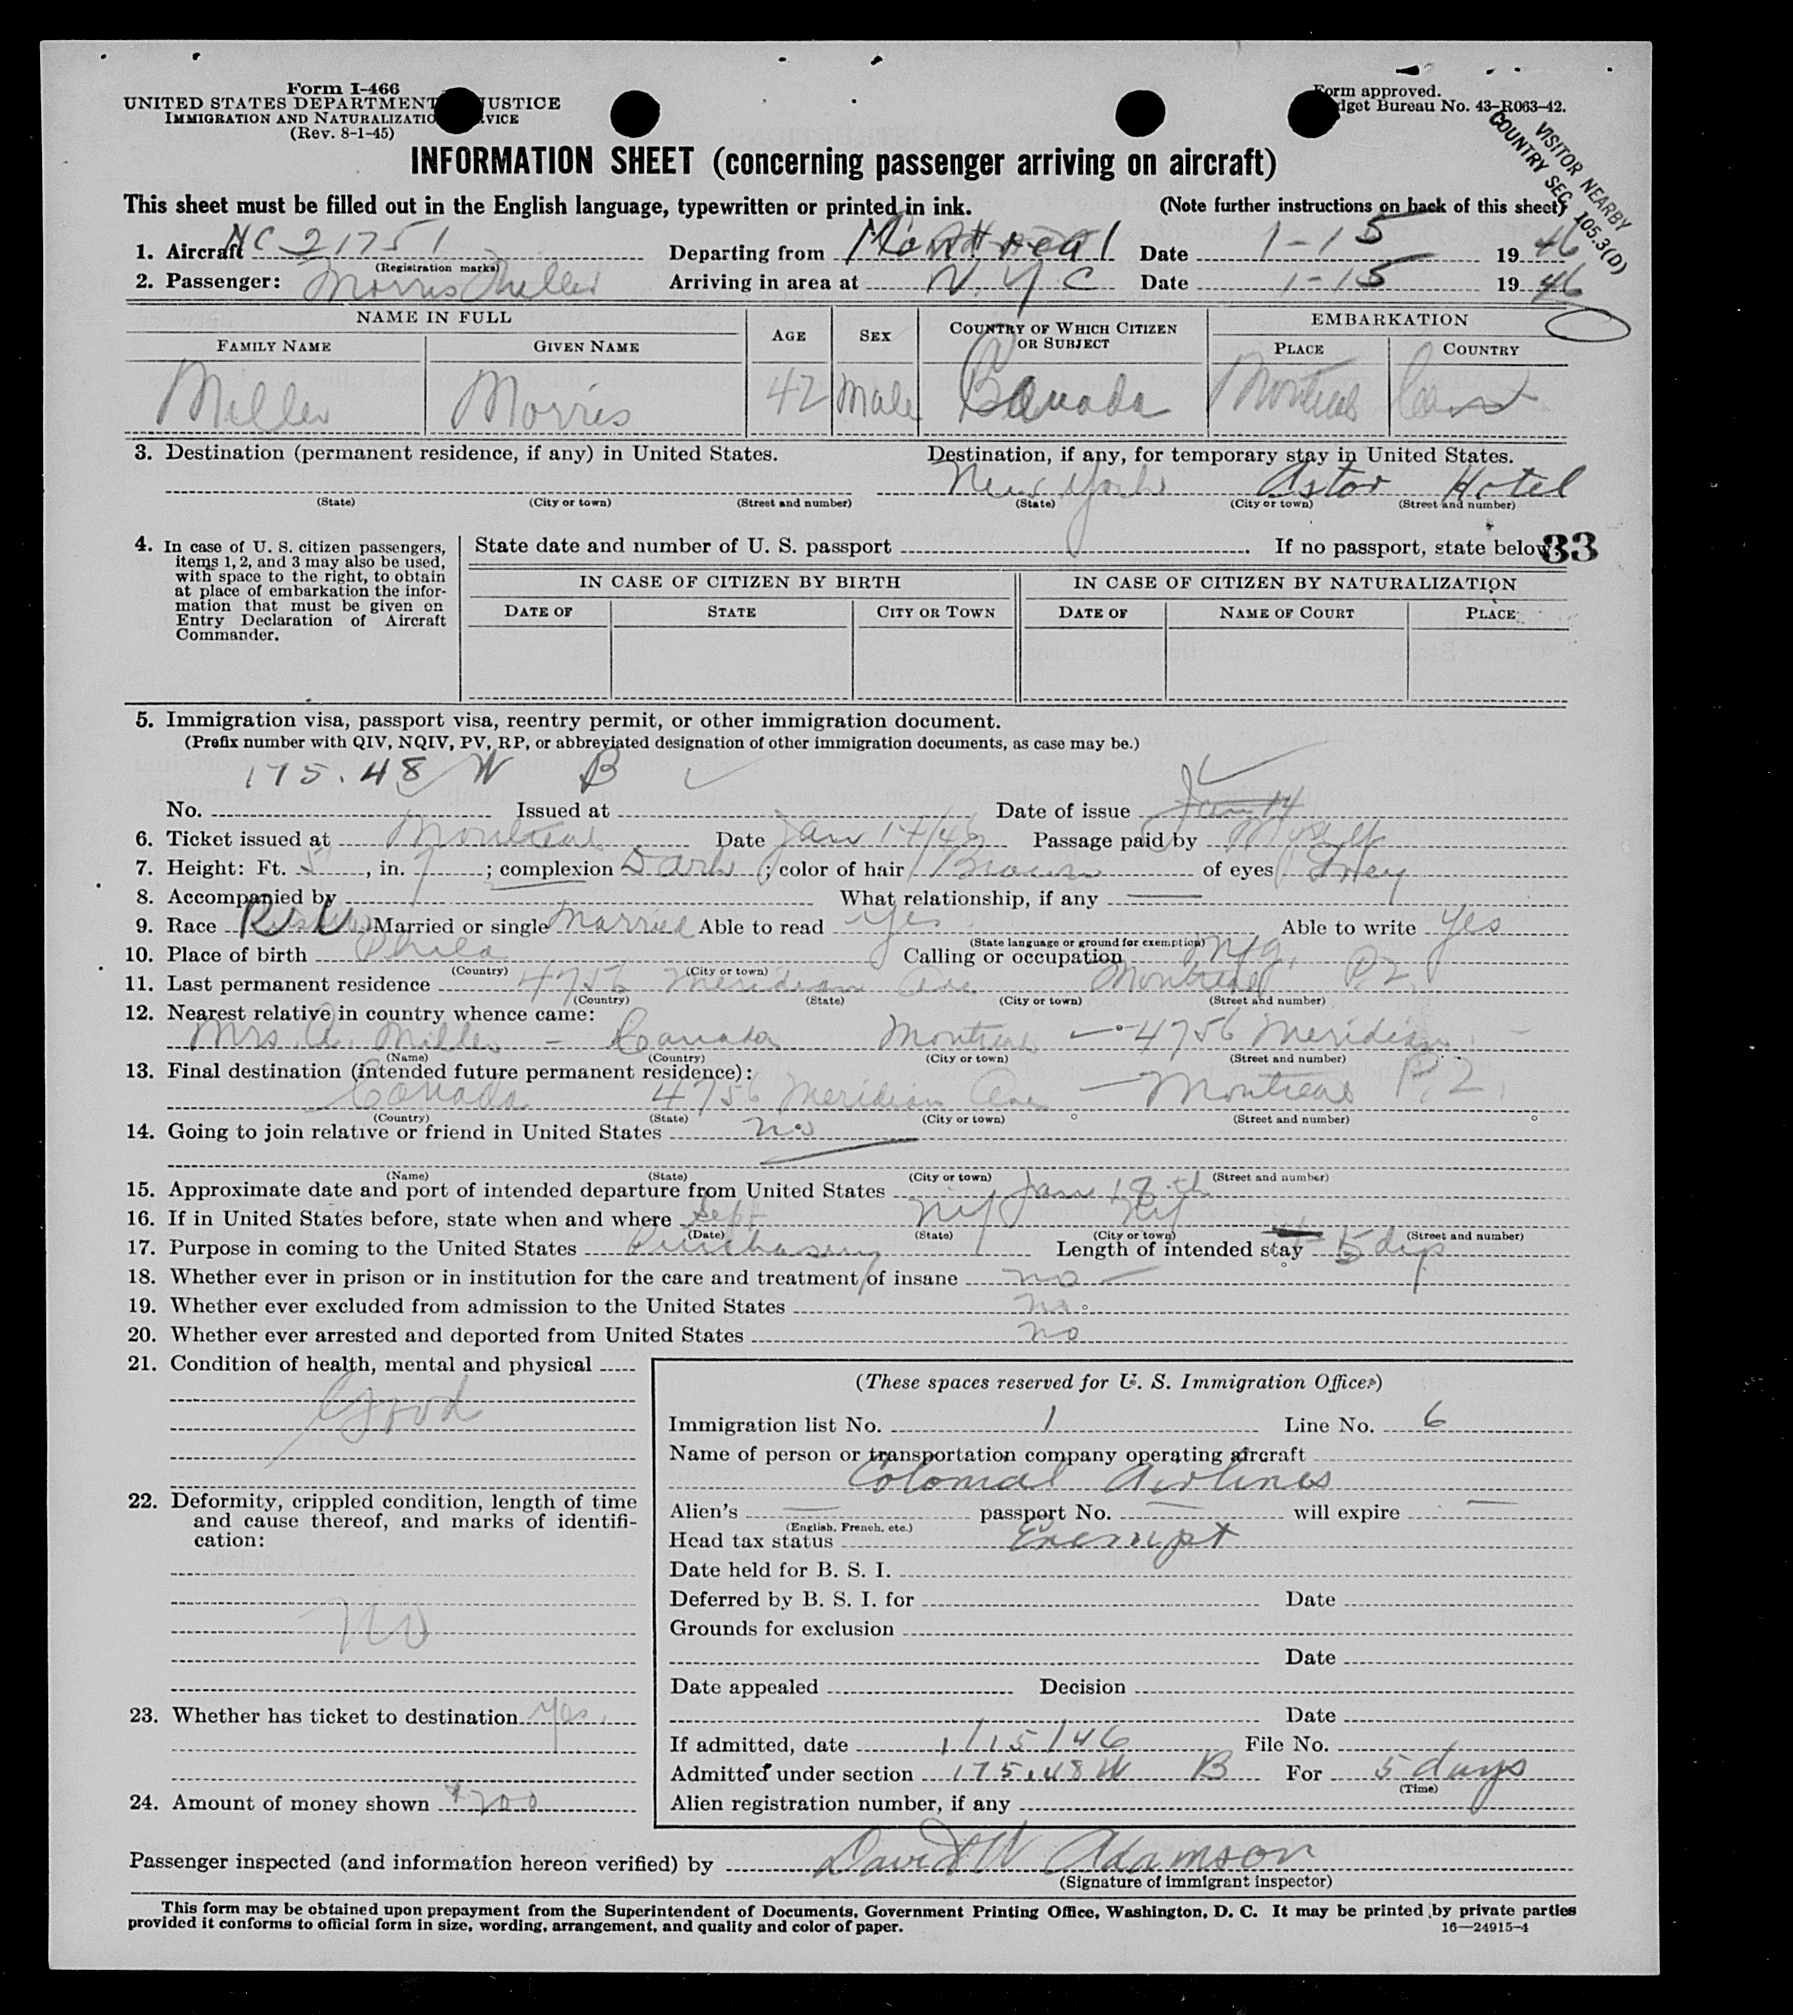 Form I-466
UNITED STATES DEPARTMENT JUSTICE
IMMIGRATION AND NATURALIZATIO VICE
(Rev. 8-1-45)
Form approved.
dget Bureau No. 43-R063-42.
VISITOR NEARBY
COUNTRY SEC. 105.3(D)
INFORMATION SHEET (concerning passenger arriving on aircraft)
This sheet must be filled out in the English language, typewritten or printed in ink. (Note further instructions on back of this sheet)
1. Aircraft NC 21751 Departing from Montreal Date 1-15 1946
(Registration marks)
2. Passenger: Morris Miller Arriving in area at N.Y C Date 1-15 1946
NAME IN FULL AGE SEX COUNTRY OF WHICH CITIZEN OR SUBJECT EMBARKATION
FAMILY NAME GIVEN NAME PLACE COUNTRY
Miller Morris 42 Male Canada Montreal Can
3. Destination (permanent residence, if any) in United States. Destination, if any, for temporary stay in United States.
New York Astor Hotel
(State) (City or town) (Street and number) (State) (City or town) (Street and number)
4. In case of U. S. citizen passengers, items 1, 2, and 3 may also be used, with space to the right, to obtain at place of embarkation the information that must be given on Entry Declaration of Aircraft Commander.
State date and number of U. S. passport . If no passport, state below: 33
IN CASE OF CITIZEN BY BIRTH IN CASE OF CITIZEN BY NATURALIZATION
DATE OF STATE CITY OR TOWN DATE OF NAME OF COURT PLACE
5. Immigration visa, passport visa, reentry permit, or other immigration document.
(Prefix number with QIV, NQIV, PV, RP, or abbreviated designation of other immigration documents, as case may be.)
175.48 W B
No. Issued at Date of issue Jan 14
6. Ticket issued at Montreal Date Jan 14/46 Passage paid by Myself
7. Height: Ft. 5, in. 7; complexion Dark; color of hair Brown of eyes Grey
8. Accompanied by What relationship, if any
9. Race Married or single Married Able to read yes Able to write yes
(State language or ground for exemption)
10. Place of birth Phila Calling or occupation Mfg.
(Country) (City or town)
11. Last permanent residence 4756 Meridian Ave Montreal P.2.
(Country) (State) (City or town) (Street and number)
12. Nearest relative in country whence came:
Mrs. A. Miller - Canada Montreal - 4756 Meridian
(Name) (Country) (City or town) (Street and number)
13. Final destination (intended future permanent residence):
Canada 4756 Meridian Ave - Montreal P.2.
(Country) (State) (City or town) (Street and number)
14. Going to join relative or friend in United States no
(Name) (State) (City or town) (Street and number)
15. Approximate date and port of intended departure from United States Jan 18th
16. If in United States before, state when and where Sept NY NY
(Date) (State) (City or town) (Street and number)
17. Purpose in coming to the United States Purchasing Length of intended stay 5 dys
18. Whether ever in prison or in institution for the care and treatment of insane no
19. Whether ever excluded from admission to the United States no
20. Whether ever arrested and deported from United States no
21. Condition of health, mental and physical
Good
22. Deformity, crippled condition, length of time and cause thereof, and marks of identification:
no
23. Whether has ticket to destination yes
24. Amount of money shown $200
(These spaces reserved for U. S. Immigration Officer)
Immigration list No. 1 Line No. 6
Name of person or transportation company operating aircraft
Colonial Airlines
Alien's passport No. will expire
(English, French, etc.)
Head tax status Exempt
Date held for B. S. I.
Deferred by B. S. I. for Date
Grounds for exclusion
Date
Date appealed Decision
Date
If admitted, date 1/15/46 File No.
Admitted under section 175.48 W B For 5 days
(Time)
Alien registration number, if any
Passenger inspected (and information hereon verified) by David W Adamson
(Signature of immigrant inspector)
This form may be obtained upon prepayment from the Superintendent of Documents, Government Printing Office, Washington, D. C. It may be printed by private parties
provided it conforms to official form in size, wording, arrangement, and quality and color of paper. 16—24915-4